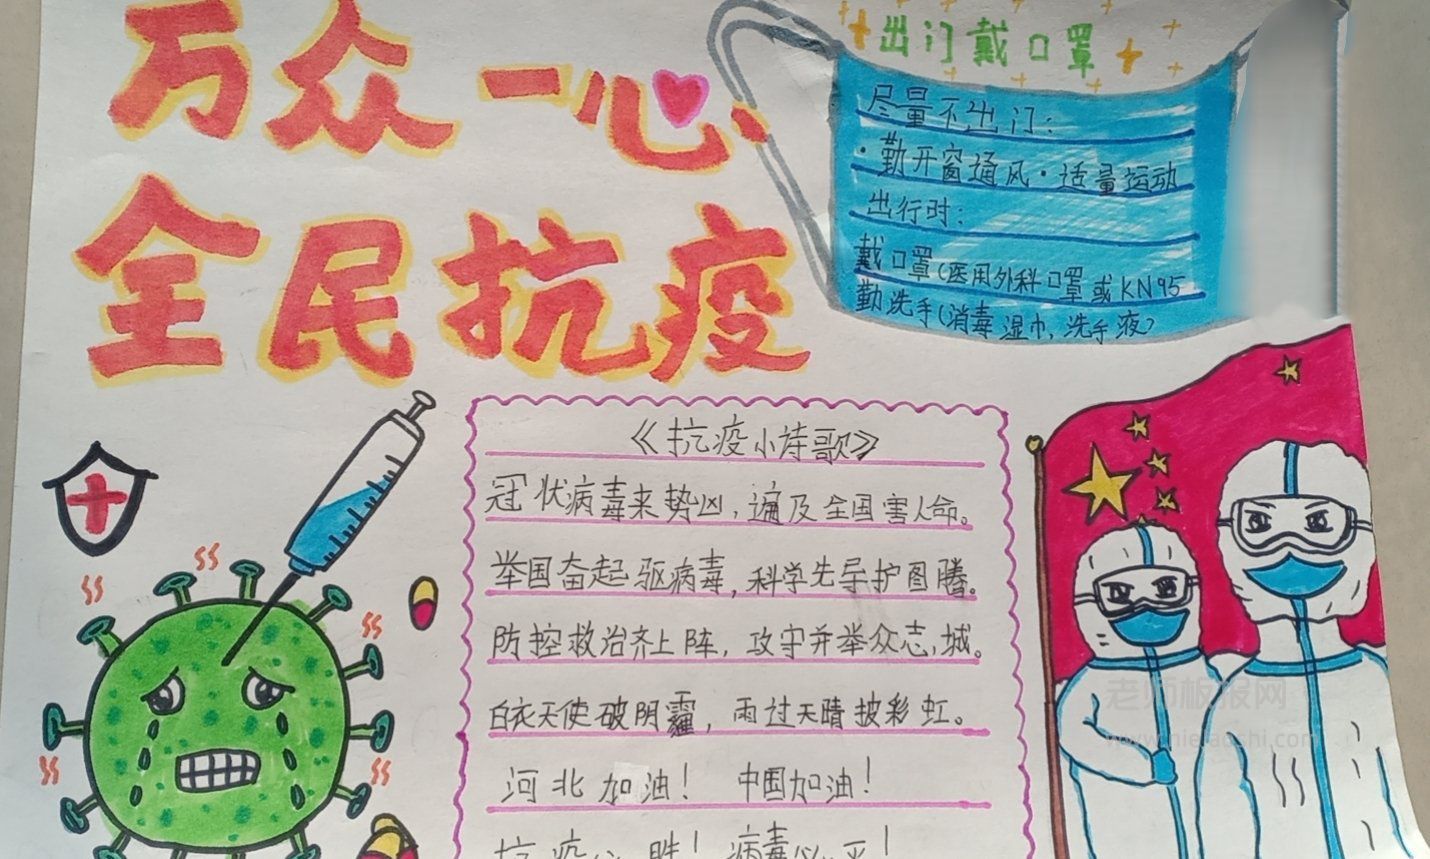 万众一心
全民抗疫
出门戴口罩
尽量不出门：
·勤开窗通风·适量运动
出行时：
戴口罩(医用外科口罩或KN95
勤洗手(消毒湿巾,洗手液)
《抗疫小诗歌》
冠状病毒来势凶,遍及全国害人命。
举国奋起驱病毒,科学先导护图腾。
防控救治齐上阵,攻守并举众志,城。
白衣天使破阴霾,雨过天晴披彩虹。
河北加油！ 中国加油！
抗疫必胜！病毒必灭！
老师板报网